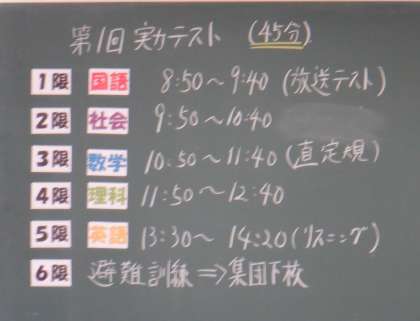 第1回 実力テスト (45分)
1限 国語 8:50～9:40 (放送テスト)
2限 社会 9:50～10:40
3限 数学 10:50～11:40 (直定規)
4限 理科 11:50～12:40
5限 英語 13:30～14:20 (リスニング)
6限 避難訓練 ⇒ 集団下校